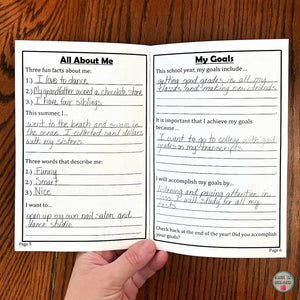 All About Me
Three fun facts about me:
1.) I love to dance.
2.) My grandfather owned a chocolate store.
3.) I have four siblings.
This summer, I...
went to the beach and swam in
the ocean. I collected sand dollars
with my sisters.
Three words that describe me:
1.) Funny
2.) Smart
3.) Nice
I want to...
open up my own nail salon and
dance studio.
Page 5
My Goals
This school year, my goals include...
getting good grades in all my
classes and making new friends.
It is important that I achieve my goals
because...
I want to go to college with good
grades on my transcripts.
I will accomplish my goals by...
listening and paying attention in
class. I will study for all my
tests.
Check back at the end of the year! Did you accomplish
your goals?
Page 6